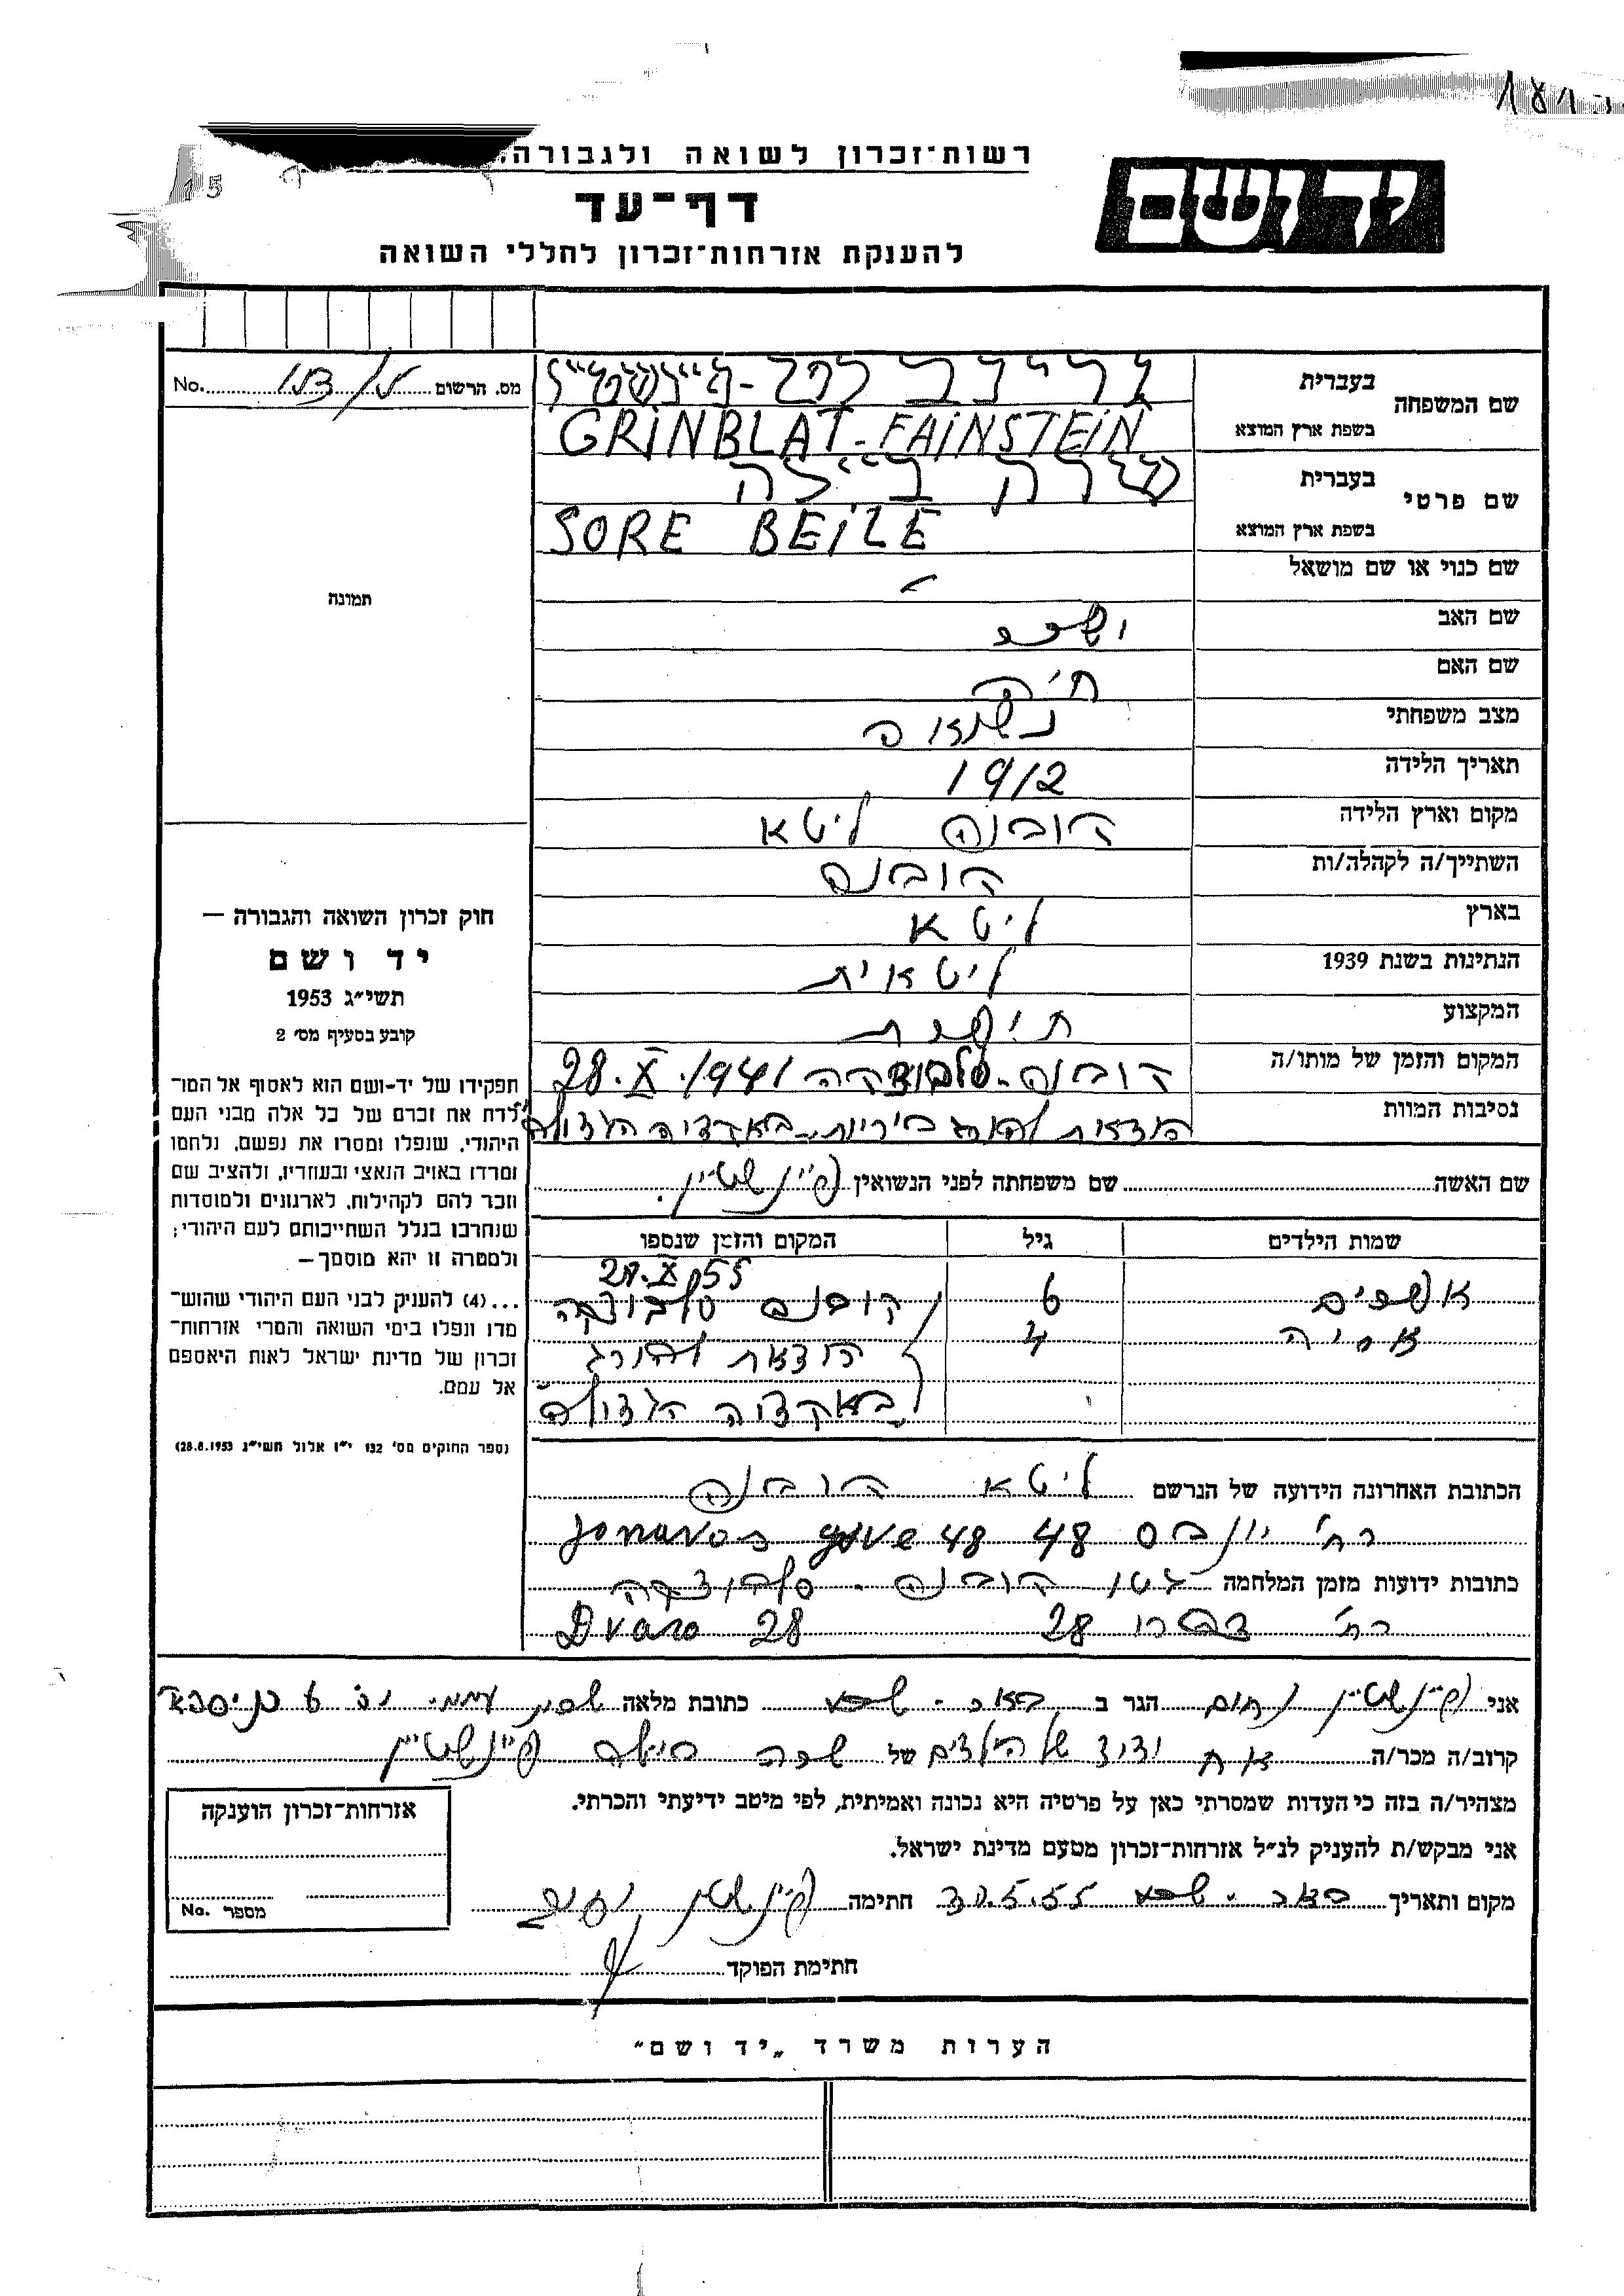 רשות־זכרון לשואה ולגבורה
יד ושם
דף־עד
להענקת אזרחות־זכרון לחללי השואה
מס. הרשום No.
שם המשפחה
בעברית גרינבלט-פיינשטיין
בשפת ארץ המוצא GRINBLAT-FAINSTEIN
שם פרטי
בעברית שרה ביילה
בשפת ארץ המוצא SORE BEILE
שם כנוי או שם מושאל -
שם האב
שם האם חיה
מצב משפחתי נשואה
תאריך הלידה 1912
מקום וארץ הלידה קובנה ליטא
השתייך/ה לקהלה/ות קובנה
בארץ ליטא
הנתינות בשנת 1939 ליטאית
המקצוע
המקום והזמן של מותו/ה קובנה - סלבודקה 28.X.1941
נסיבות המוות הוצאת להורג ביריות, באקציה הגדולה
שם האשה שם משפחתה לפני הנשואין פיינשטיין.
שמות הילדים גיל המקום והזמן שנספו
28.X
6 קובנה סלבודקה
אריה 4
הוצאת להורג
באקציה הגדולה
הכתובת האחרונה הידועה של הנרשם ליטא קובנה
רח' יונבוס 48 Jonavos gatve 48
כתובות ידועות מזמן המלחמה גטו קובנה - סלבודקה
רח' דברו 28 Dvaro 28
תמונה
חוק זכרון השואה והגבורה —
יד ושם
תשי״ג 1953
קובע בסעיף מס׳ 2
תפקידו של יד-ושם הוא לאסוף אל המו־
לדת את זכרם של כל אלה מבני העם
היהודי, שנפלו ומסרו את נפשם, נלחמו
ומרדו באויב הנאצי ובעוזריו, ולהציב שם
וזכר להם לקהילות, לארגונים ולמוסדות
שנחרבו בגלל השתייכותם לעם היהודי;
ולמטרה זו יהא מוסמך—
...(4) להעניק לבני העם היהודי שהוש־
מדו ונפלו בימי השואה והמרי אזרחות־
זכרון של מדינת ישראל לאות היאספם
אל עמם.
(ספר החוקים מס׳ 132 י״ז אלול תשי״ג 28.8.1953)
אני פיינשטיין נחום הגר ב באר-שבע כתובת מלאה שכון עממי
קרוב/ה מכר/ה אח ודוד של הילדים של שרה ביילה פיינשטיין
מצהיר/ה בזה כי העדות שמסרתי כאן על פרטיה היא נכונה ואמיתית, לפי מיטב ידיעתי והכרתי.
אני מבקש/ת להעניק לנ״ל אזרחות־זכרון מטעם מדינת ישראל.
מקום ותאריך באר-שבע 30.5.55 חתימה פיינשטיין נחום
חתימת הפוקד
אזרחות־זכרון הוענקה
מספר No.
הערות משרד „יד ושם״